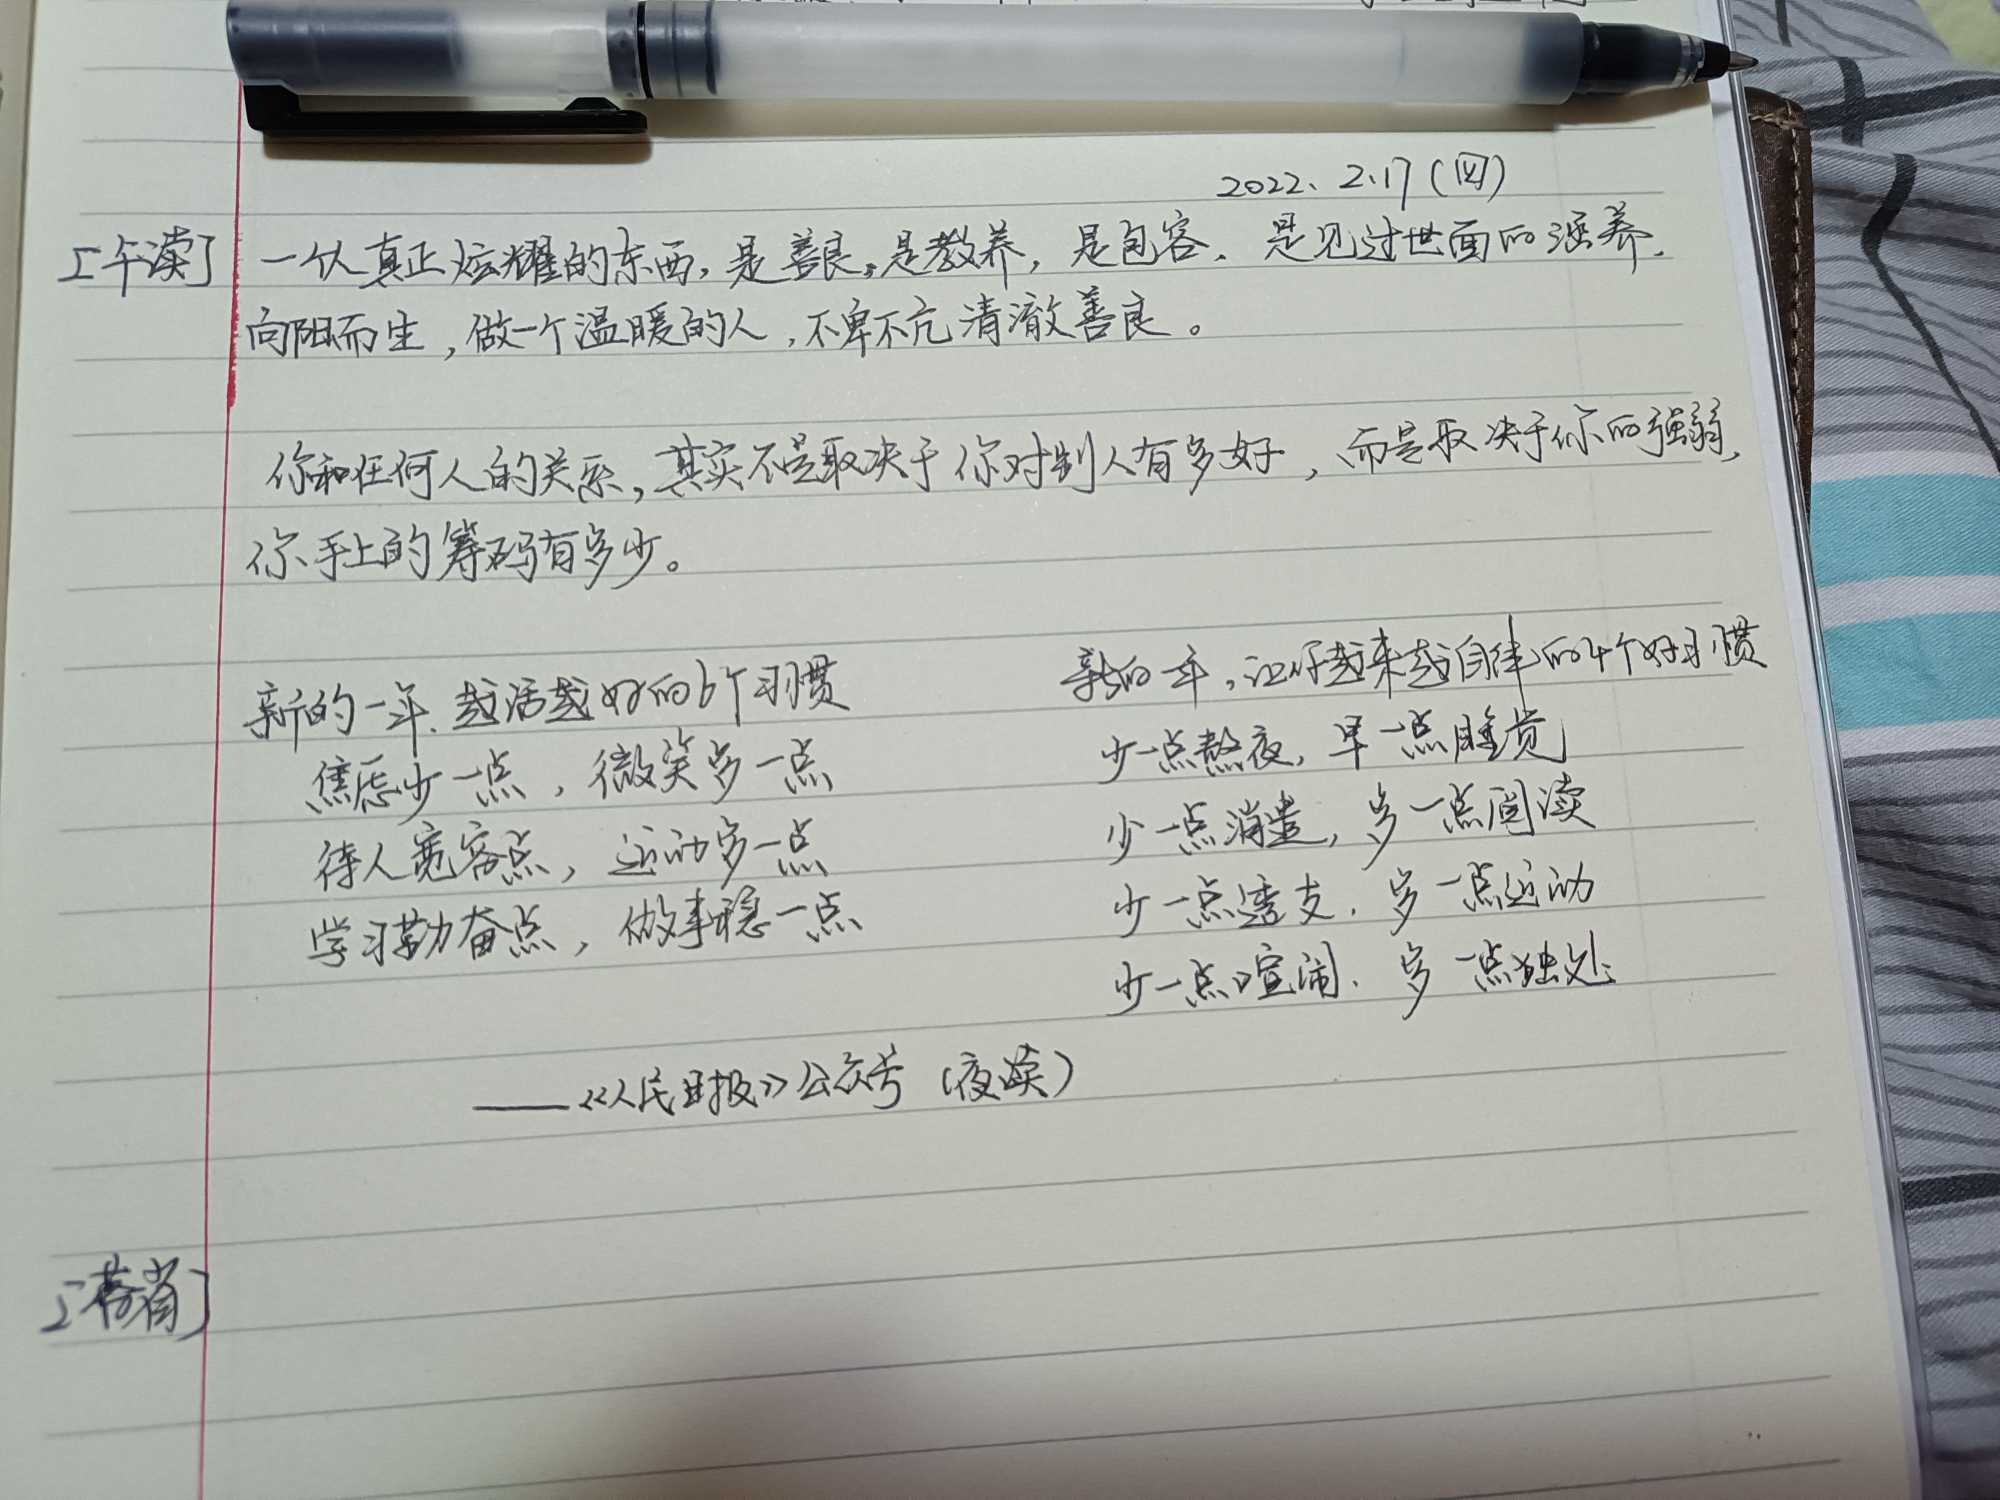 2022.2.17(四)
[午读] 一个人真正炫耀的东西,是善良,是教养,是包容,是见过世面的涵养,
向阳而生,做一个温暖的人,不卑不亢清澈善良。
你和任何人的关系,其实不是取决于你对别人有多好,而是取决于你的强弱,
你手上的筹码有多少。
新的一年,越活越好的6个习惯
焦虑少一点,微笑多一点
待人宽容点,运动多一点
学习勤奋点,做事稳一点
新的一年,让你越来越自律的4个好习惯
少一点熬夜,早一点睡觉
少一点消遣,多一点阅读
少一点透支,多一点运动
少一点喧闹,多一点独处
——《人民日报》公众号(夜读)
[暮省]